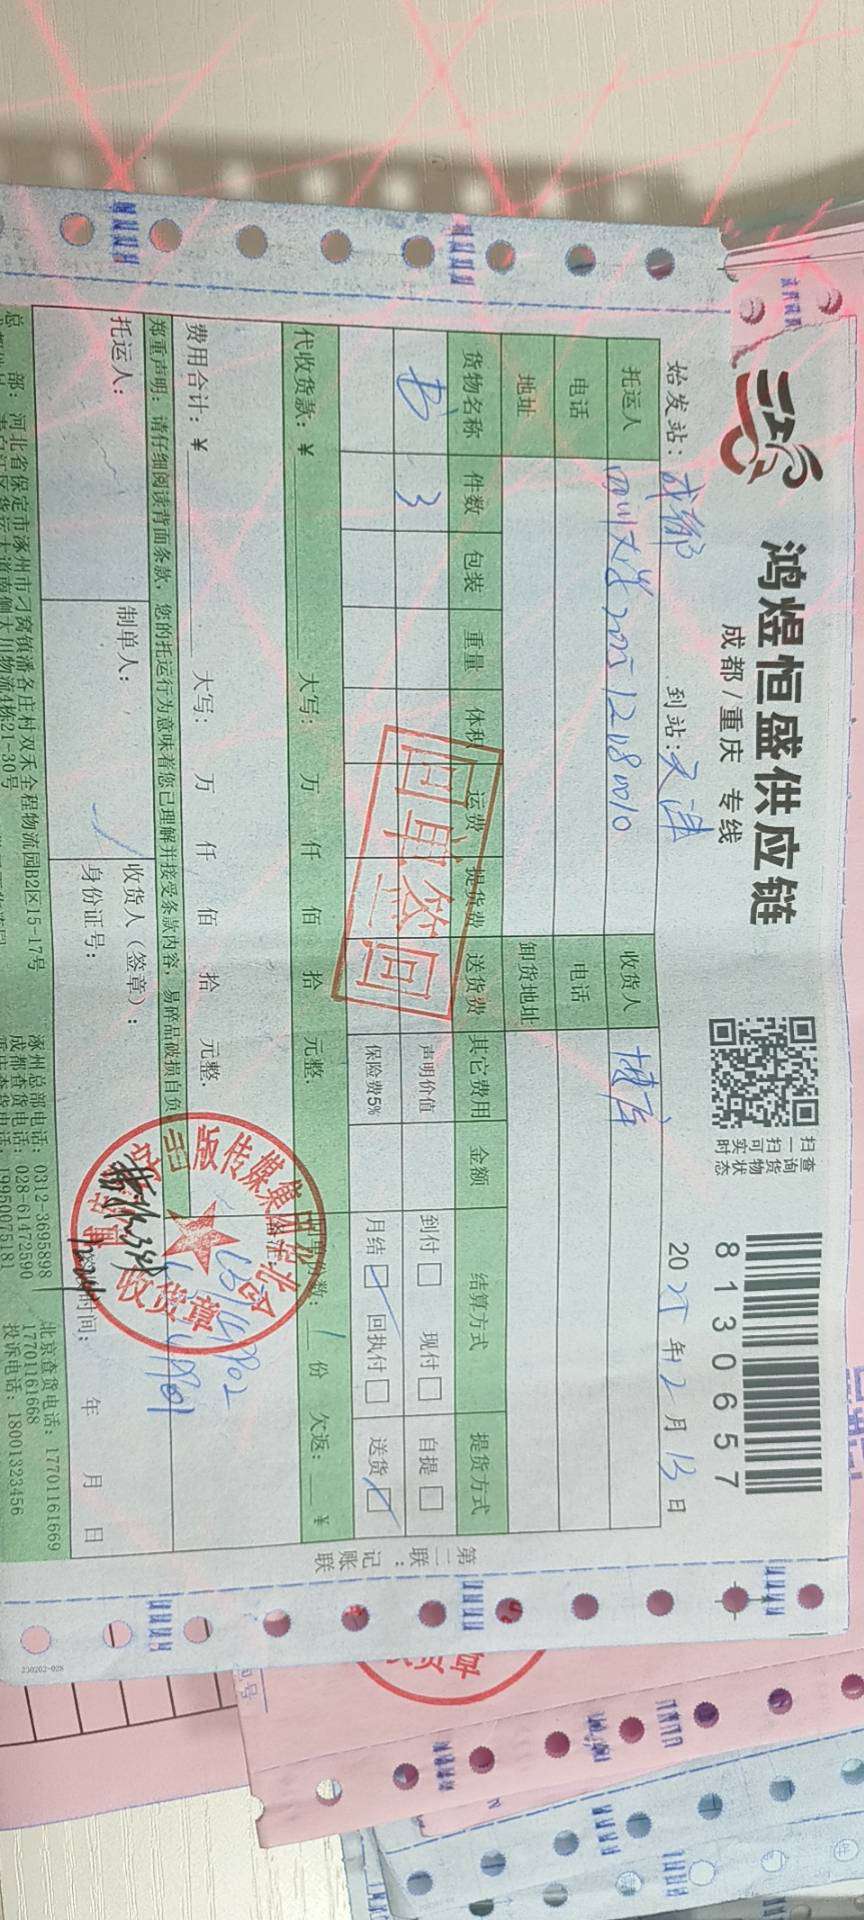 鸿煜恒盛供应链
成都/重庆 专线
扫一扫可实时
查询货物状态
8130657
始发站：成都 到站：天津 2025年12月13日
托运人 四川文港202512180010 收货人 博库
电话 电话
地址 卸货地址
货物名称 件数 包装 重量 体积 运费 提货费 送货费 其它费用 金额 结算方式 提货方式
书 3 声明价值 到付 现付 自提
保险费5% 月结 回执付 送货
回单签回
代收货款：¥ 大写： 万 仟 佰 拾 元整. 份数：1份 欠返： ¥
费用合计：¥ 大写： 万 仟 佰 拾 元整. 备注：
郑重声明：请仔细阅读背面条款，您的托运行为意味着您已理解并接受条款内容，易碎品破损自负
托运人： 制单人： 收货人（签章）：
身份证号： 时间： 年 月 日
收货章
部：河北省保定市涿州市刁窝镇潘各庄村双禾全程物流园B2区15-17号 涿州总部电话：0312-3695898 北京查货电话：17701161669
成都查货电话：028-61472590 17701161668
19950075181 投诉电话：18001323456
第二联：记账联
230202-028
收货章